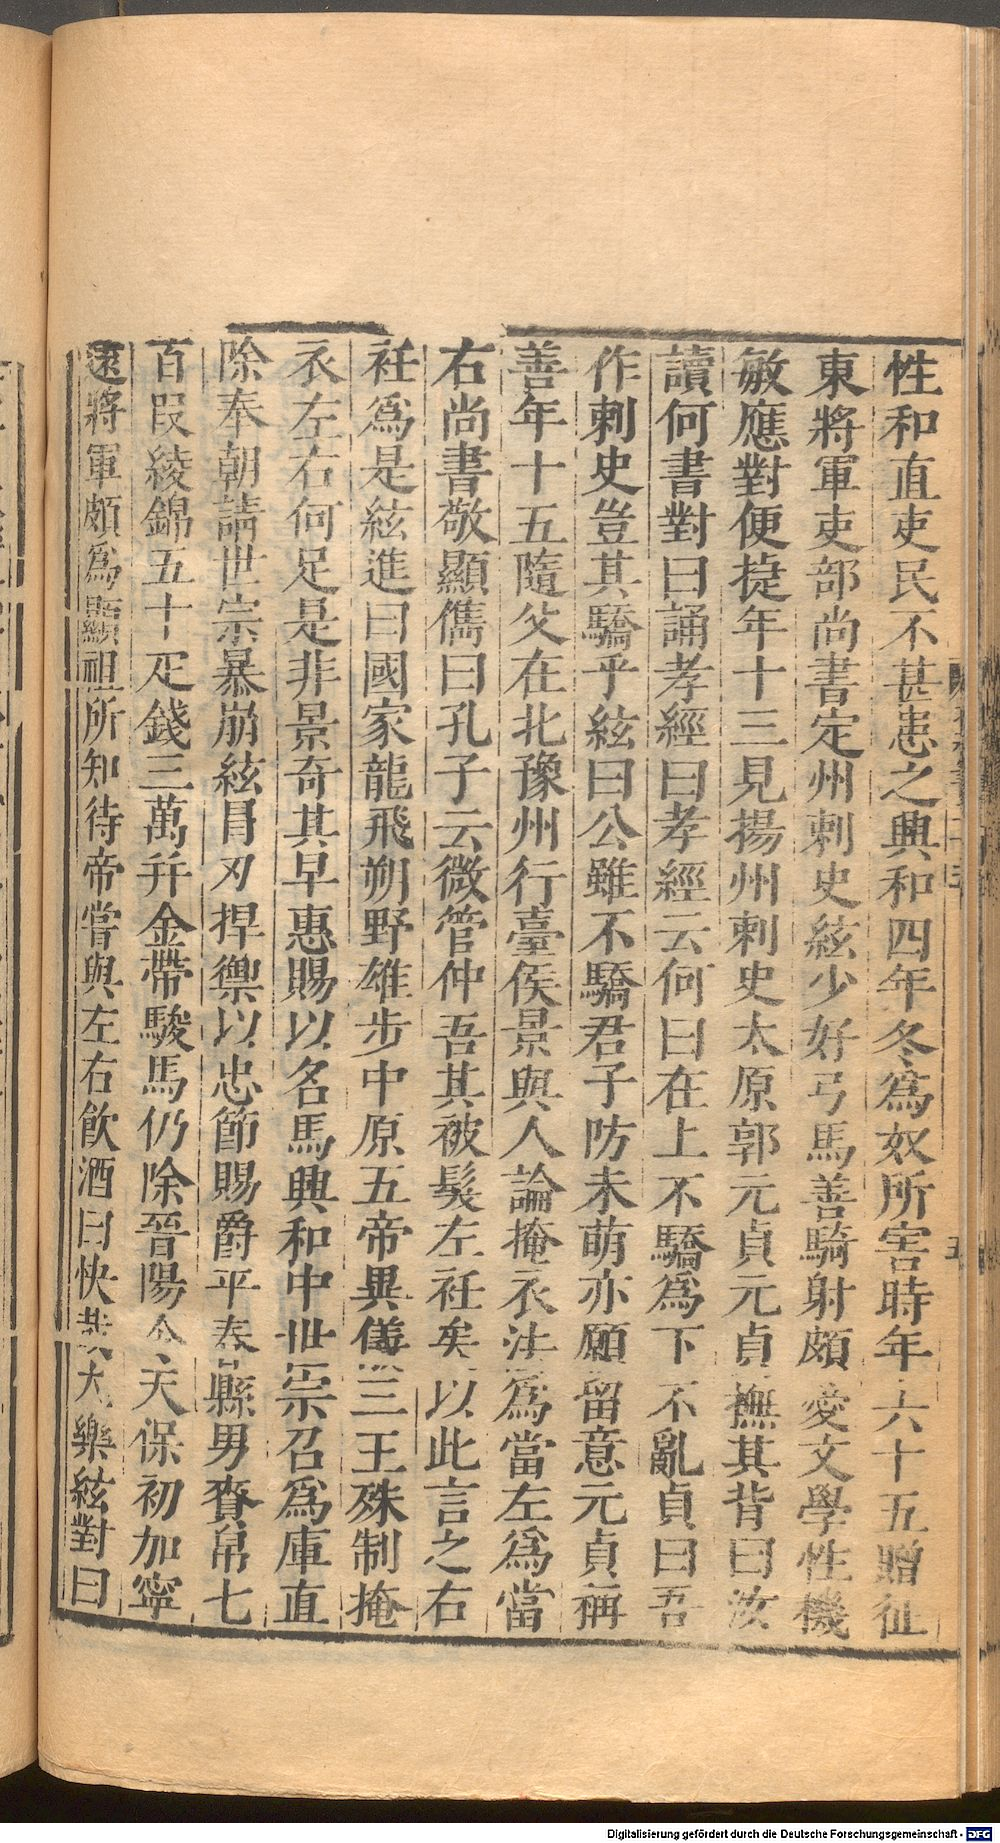 性和直吏民不甚患之興和四年冬爲奴所害時年六十五贈征
東將軍吏部尚書定州刺史絃少好弓馬善騎射頗愛文學性機
敏應對便㨗年十三見揚州刺史太原郭元貞元貞撫其背曰汝
讀何書對曰誦孝經曰孝經云何曰在上不驕爲下不亂貞曰吾
作刺史豈其驕乎絃曰公雖不驕君子防未萌亦願留意元貞稱
善年十五隨父在北豫州行臺侯景與人論掩衣法爲當左爲當
右尚書敬顯儁曰孔子云微管仲吾其被髮左衽矣以此言之右
衽爲是絃進曰國家龍飛朔野雄步中原五帝異儀三王殊制掩
衣左右何足是非景奇其早惠賜以名馬興和中世宗召爲庫直
除奉朝請世宗暴崩絃冒刃捍禦以忠節賜爵平春縣男賚帛七
百段綾錦五十疋錢三萬幷金帶駿馬仍除晉陽令天保初加寧
遠將軍頗爲顯祖所知待帝嘗與左右飲酒曰快哉大樂絃對曰
Digitalisierung gefördert durch die Deutsche Forschungsgemeinschaft - DFG